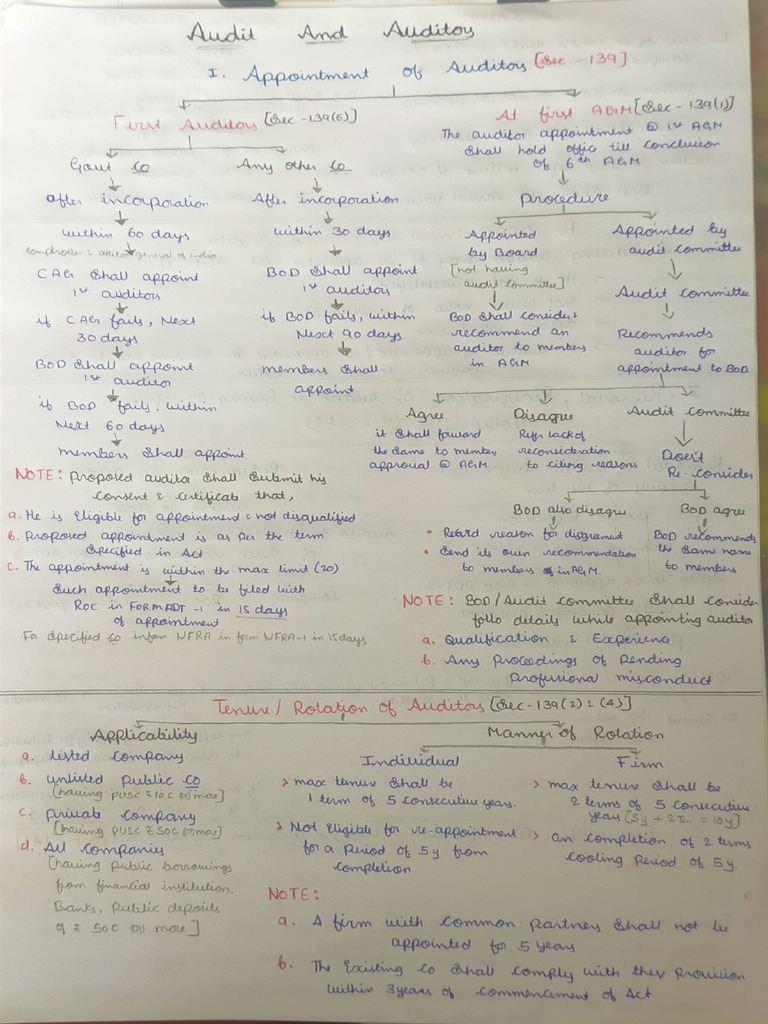 Audit And Auditors
I. Appointment of Auditors [Sec - 139]
First Auditors [Sec - 139(6)]
Govt Co
after incorporation
within 60 days
comptroller & auditor general of india
CAG Shall appoint
1st auditors
if CAG fails, Next
30 days
BOD Shall appoint
1st auditor
if BOD fails, within
Next 60 days
members Shall appoint
Any other Co
After incorporation
within 30 days
BOD Shall appoint
1st auditors
if BOD fails, within
Next 90 days
members Shall
appoint
NOTE: Proposed auditor Shall Submit his
Consent & Certificate that,
a. He is Eligible for appointment & not disqualified
b. Proposed appointment is as Per the term
Specified in Act
c. The appointment is within the max limit (20)
Such appointment to be filed with
ROC in FORM ADT -1 in 15 days
of appointment
For Specified Co inform NFRA in form NFRA-1 in 15 days
At first AGM [Sec - 139(1)]
The auditor appointment @ 1st AGM
Shall hold office till conclusion
of 6th AGM
Procedure
Appointed
by Board
[not having
audit committee]
BOD Shall consider &
recommend an
auditor to members
in AGM
Appointed by
audit committee
Audit committee
Recommends
auditor for
appointment to BOD
Agree
it Shall forward
the Same to member
approval @ AGM
Disagree
Refer back of
reconsideration
to citing reasons
Audit committee
Does't
Re-consider
BOD also disagree
• Record reason for disgrement
• Send its own recommendation
to members in AGM
BOD agree
BOD recommends
the Same name
to members
NOTE: BOD/Audit committee Shall Consider
follo details while appointing auditor
a. Qualification & Experience
b. Any Proceedings of Pending
Professional misconduct
Tenure/Rotation of Auditors [Sec - 139(2) & (4)]
Applicability
a. listed company
b. unlisted Public Co
[having PUSC ≥ 10C or more]
c. Private company
[having PUSC ≥ 50C or more]
d. All Companies
[having Public borrowings
from financial institution,
Banks, Public deposits
of ≥ 50C or more]
Manner of Rotation
Individual
> max tenure Shall be
1 term of 5 consecutive years.
> Not Eligible for re-appointment
for a Period of 5y from
completion
Firm
> max tenure Shall be
2 terms of 5 Consecutive
years [5y + 2Tm = 10y]
> on completion of 2 terms
cooling Period of 5y.
NOTE:
a. A firm with Common Partners Shall not be
appointed for 5 years
b. The Existing Co Shall comply with Provision
within 3 years of Commencement of Act